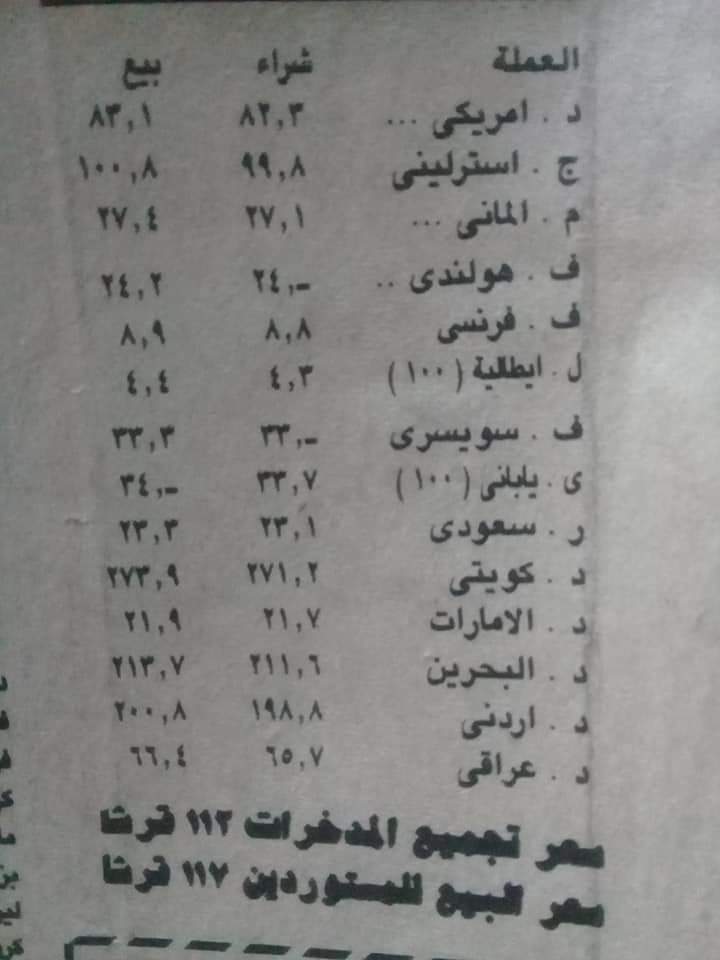 العملة شراء بيع
د . امريكى ... ٨٢,٣ ٨٣,١
ج . استرلينى ٩٩,٨ ١٠٠,٨
م . المانى ... ٢٧,١ ٢٧,٤
ف . هولندى .. ٢٤,ـ ٢٤,٢
ف . فرنسى ٨,٨ ٨,٩
ل . ايطالية ( ١٠٠ ) ٤,٣ ٤,٤
ف . سويسرى ٣٣,ـ ٣٣,٣
ى . يابانى ( ١٠٠ ) ٣٣,٧ ٣٤,ـ
ر . سعودى ٢٣,١ ٢٣,٣
د . كويتى ٢٧١,٢ ٢٧٣,٩
د . الامارات ٢١,٧ ٢١,٩
د . البحرين ٢١١,٦ ٢١٣,٧
د . اردنى ١٩٨,٨ ٢٠٠,٨
د . عراقى ٦٥,٧ ٦٦,٤
سعر تجميع المدخرات ١١٢ قرشا
سعر البيع للمستوردين ١١٧ قرشا